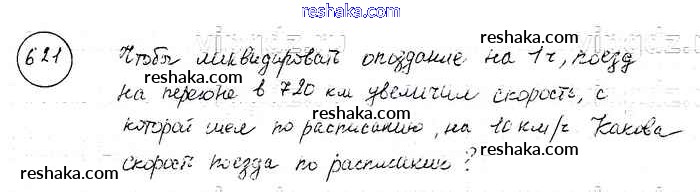 reshaka.com
621 Чтобы ликвидировать опоздание на 1ч, поезд
reshaka.com
на перегоне в 720 км увеличил скорость, с
reshaka.com
которой шел по расписанию, на 10 км/ч. Какова
reshaka.com
скорость поезда по расписанию?
reshaka.com